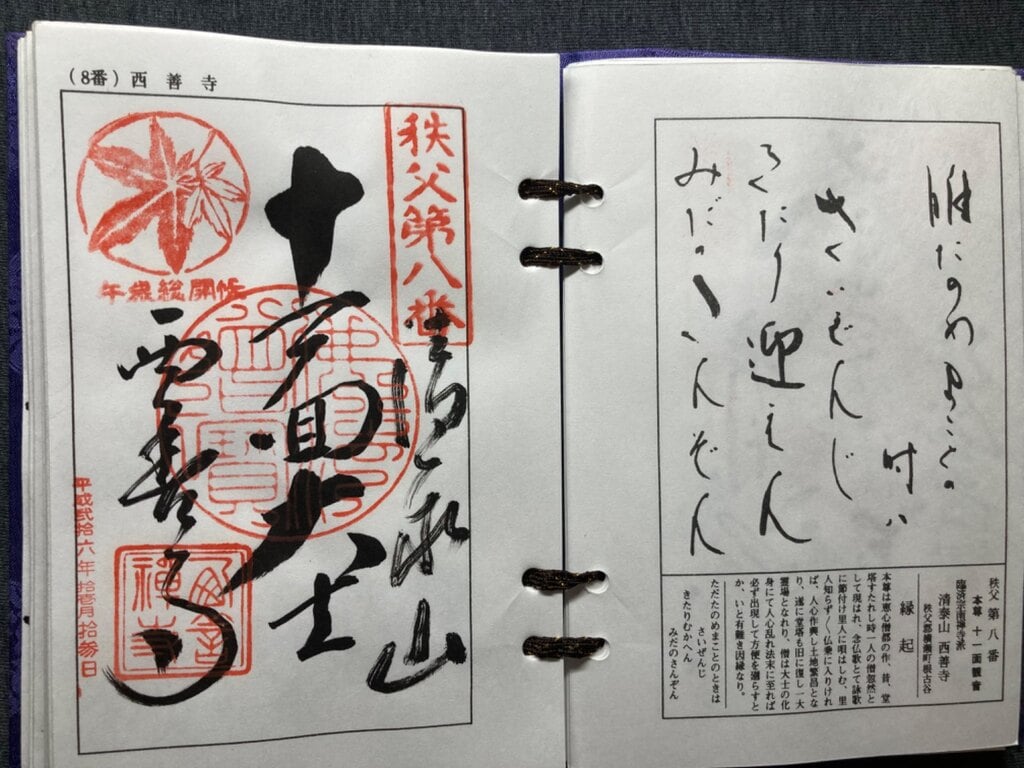 （8番）西善寺
秩父第八番
清泰山
十一面大士
西善寺
午歳総開帳
平成弐拾六年拾壱月拾参日
唯たのめまことの
時ハ
さいぜんじ
きたり迎えん
みだのさんぞん
秩父第八番
本尊 十一面観音
臨済宗南禅寺派
清泰山 西善寺
秩父郡横瀬町根古谷
縁起
本尊は恵心僧都の作、昔、堂
塔すたれし時一人の僧忽然と
して現はれ、念仏歌とて詠歌
に節付け里人に唄はしむ、里
人知らず〱仏乗に入りけれ
ば、人心作興し土地繁昌とな
り、遂に堂塔も旧に復し一大
霊場となれり、僧は大士の化
身にて人心乱れ法末に至れば
必ず出現して方便を廻らすと
か、いと有難き因縁なり。
ただたのめまことのときは
さいぜんじ
きたりむかへん
みだのさんぞん